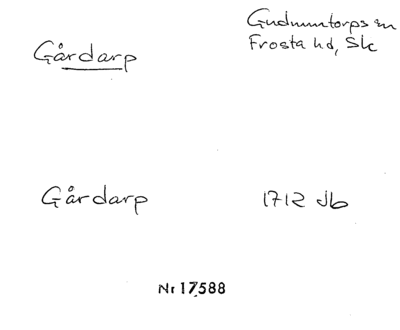 Gårdarp
Gudmuntorps sn
Frosta hd, Sk
Gårdarp
1712 Jb
Nr 17588